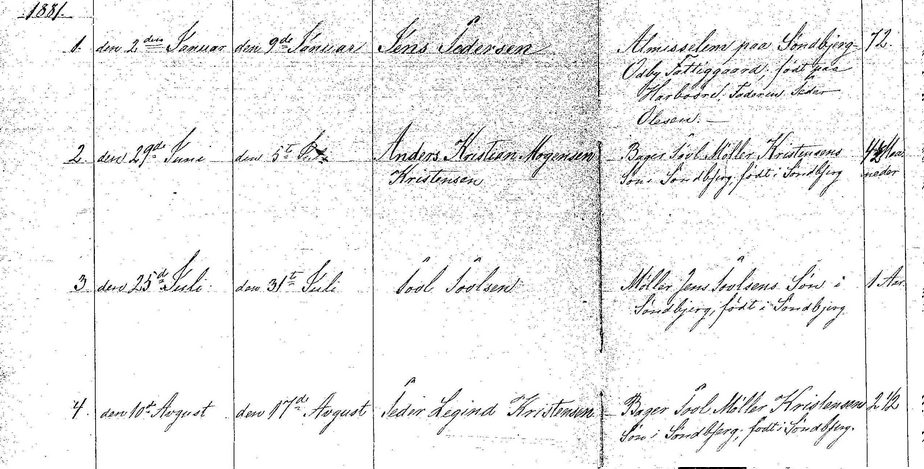 1881.
1. den 2den Januar den 9de Januar Jens Pedersen Almisselem paa Søndbjerg- 72.
Odby Fattiggaard, født paa
Harboøre. Faderen Peder
Olesen. —
2. den 29de Juni den 5te Anders Kristian Mogensen Bager Povl Møller Kristensens
Kristensen Søn i Søndbjerg, født i Søndbjerg neder
3 den 25de Juli. den 31te Juli Povl Povlsen Møller Jens Povlsens Søn i 1 Aar.
Søndbjerg, født i Søndbjerg.
4. den 10de Avgust den 17de Avgust Peder Legind Kristensen Bager Povl Møller Kristensens 2 1/2
Søn i Søndbjerg, født i Søndbjerg.